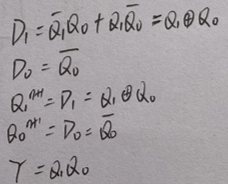 D₁ = Q̄₁Q₀ + Q₁Q̄₀ = Q₁⊕Q₀
D₀ = Q̄₀
Q₁ⁿ⁺¹ = D₁ = Q₁⊕Q₀
Q₀ⁿ⁺¹ = D₀ = Q̄₀
Y = Q₁Q₀